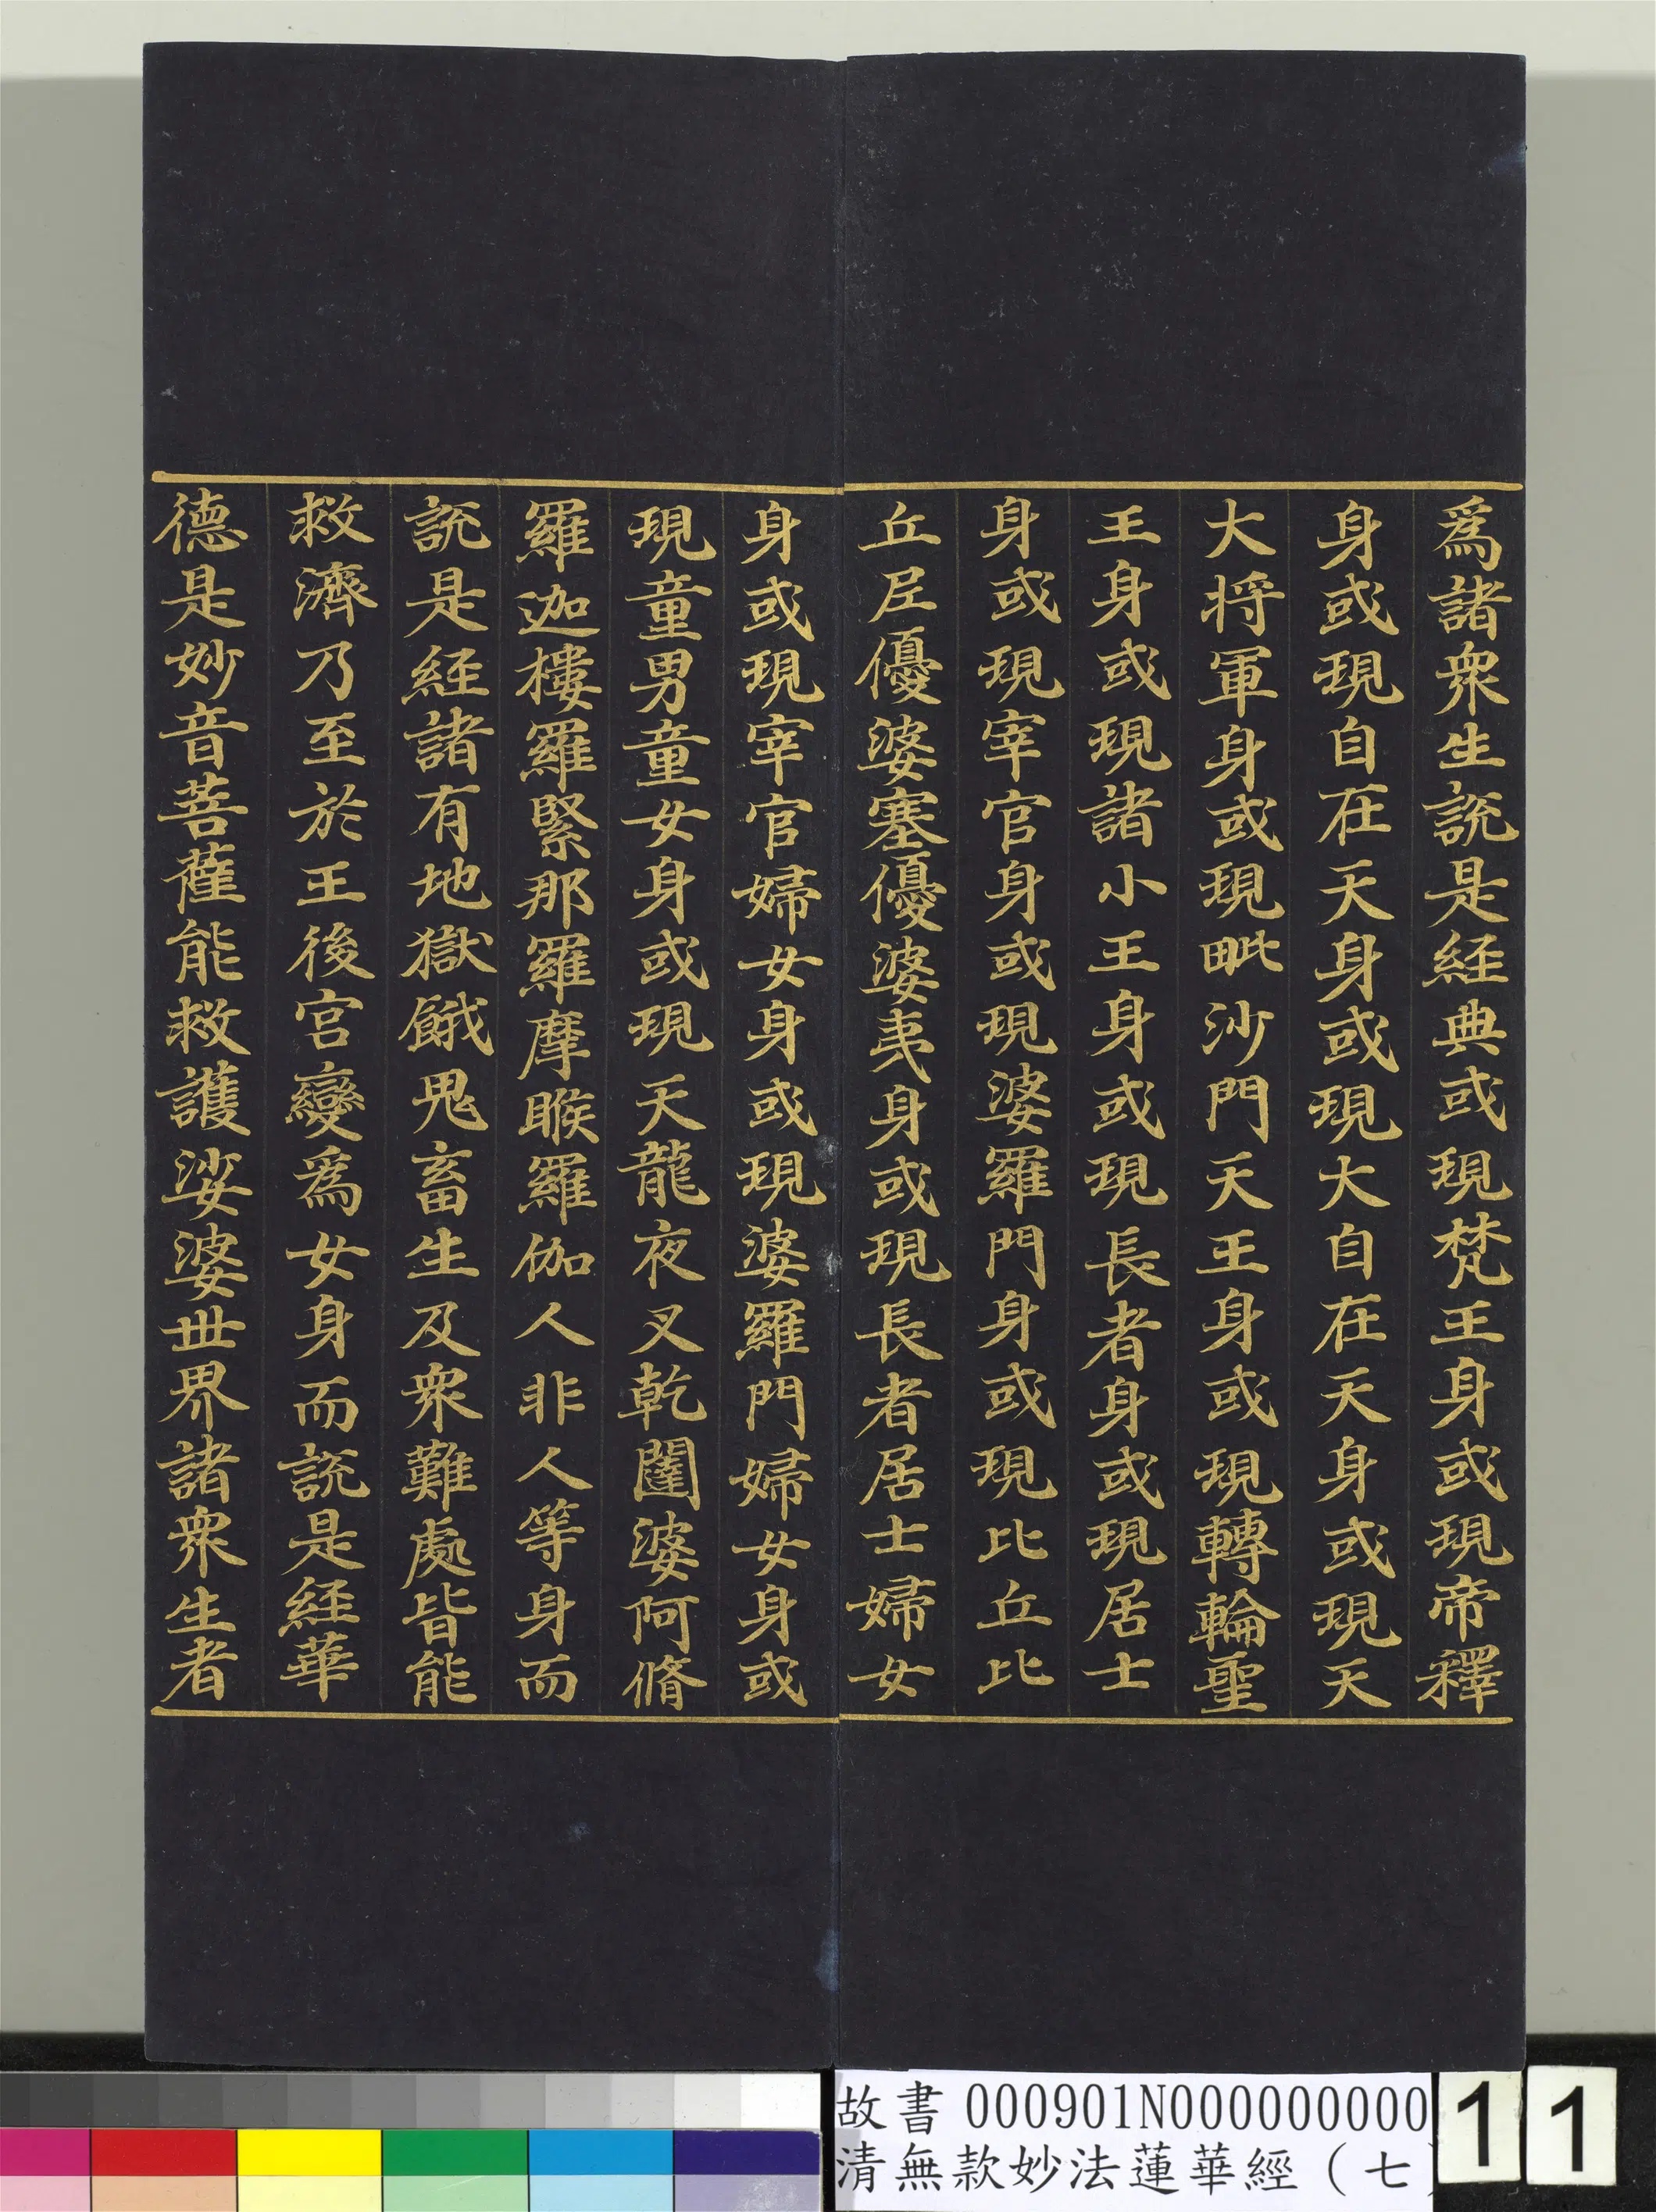 爲諸衆生説是經典或現梵王身或現帝釋
身或現自在天身或現大自在天身或現天
大將軍身或現毗沙門天王身或現轉輪聖
王身或現諸小王身或現長者身或現居士
身或現宰官身或現婆羅門身或現比丘比
丘尼優婆塞優婆夷身或現長者居士婦女
身或現宰官婦女身或現婆羅門婦女身或
現童男童女身或現天龍夜叉乾闥婆阿脩
羅迦樓羅緊那羅摩睺羅伽人非人等身而
説是經諸有地獄餓鬼畜生及衆難處皆能
救濟乃至於王後宮變爲女身而説是經華
德是妙音菩薩能救護娑婆世界諸衆生者
故書 000901N000000000
清無款妙法蓮華經（七
11